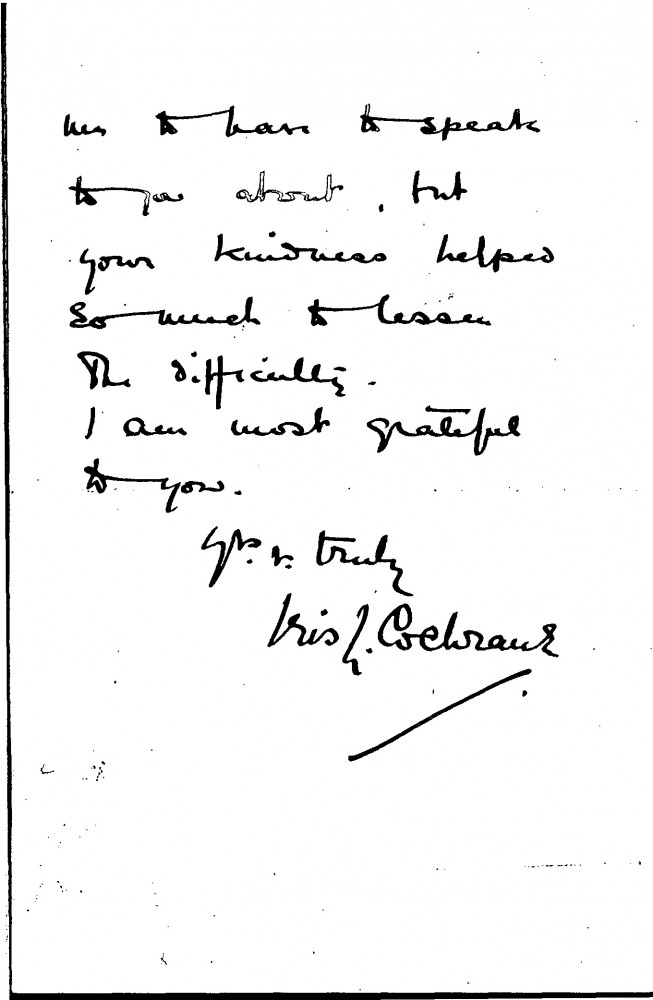 me to have to speak
to you about, but
your kindness helped
so much to lessen
The difficulty.
I am most grateful
to you.
Yrs. v. truly
Iris J. Cochrane